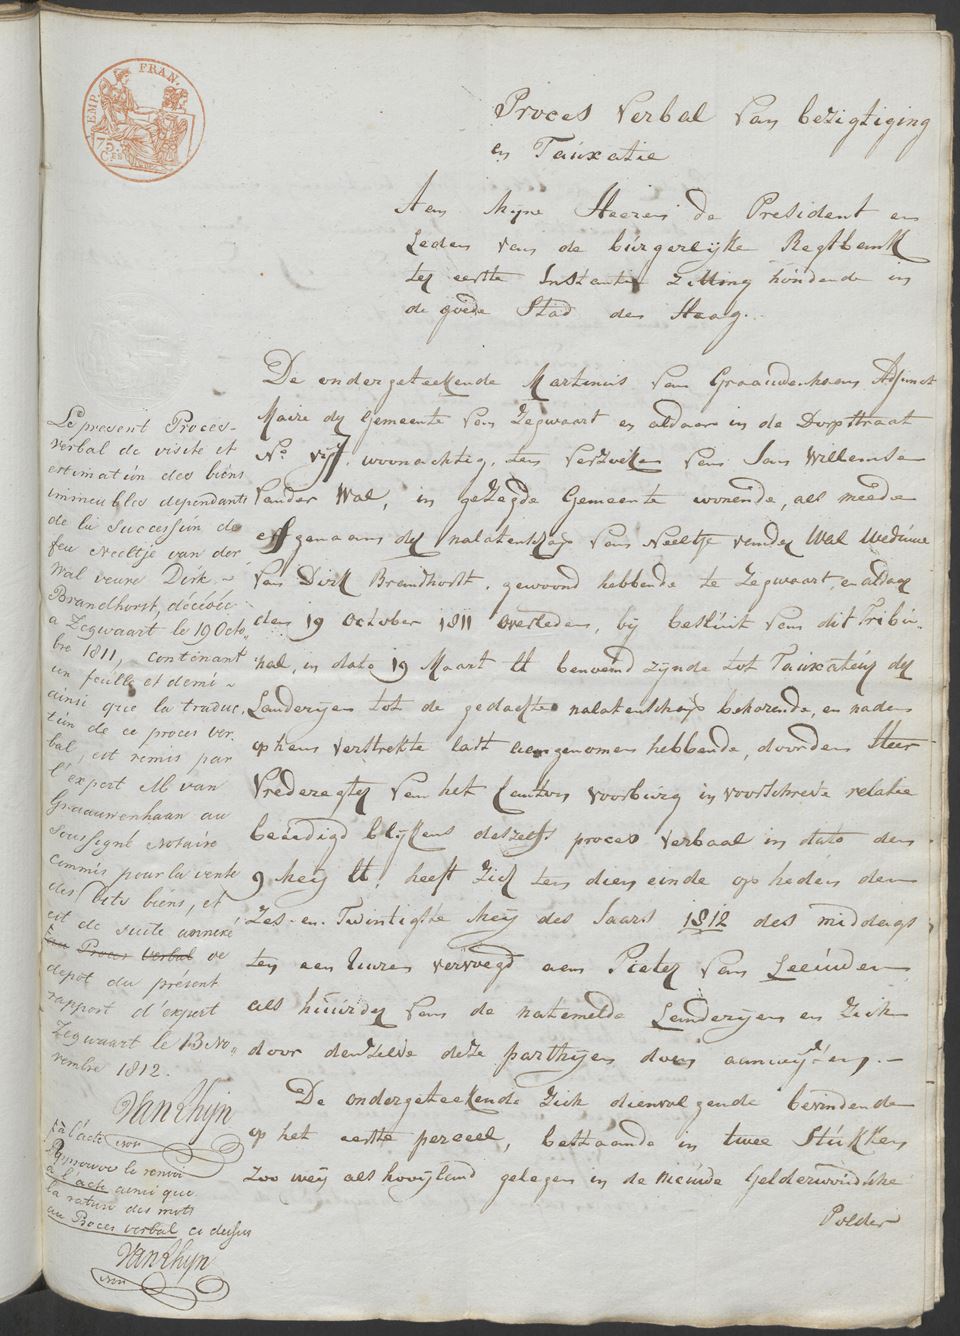 EMP. FRAN.
75.
Ces
Proces Verbal van bezigtiging
en Tauxatie
Aan Mijne Heeren de President en
Leden van de burgerlyke Regtbank
ter eerste Instantie zitting houdende in
de goede Stad den Haag.
De ondergeteekende Martinus van Graauwenhaan Adjunct
Maire der Gemeente van Zegwaart en aldaar in de Dorpstraat
No woonachtig, ten verzoeke van Jan Willemse
vander Wal, in gezegde Gemeente wonende, als meede
erfgenaam der nalatenschap van Neeltje vander Wal Weduwe
van Dirk Brandhorst, gewoond hebbende te Zegwaart, en aldaar
den 19 October 1811 overleden, by besluit van dit Tribu-
nal, in dato 19 Maart ll benoemd zynde tot Tauxateur der
Landeryen tot de gedachte nalatenschap behorende, en nader
op hem verstrekte last aangenomen hebbende, door den Heer
Vrederegter van het Canton Voorburg in voorschreve relatie
beëedigd blykens deszelfs proces verbaal in dato den
9 Mey ll, heeft zich ten dien einde op heden den
Zes-en-Twintigste Mey des Jaars 1812 des middags
ten een Uuren vervoegd aan Pieter van Leeuwen
als huurder van de natemelde Landeryen en zich
door denzelve deze parthyen doen aanwyzen.
De ondergeteekende zich dienvolgende bevindende
op het eerste perceel, bestaande in twee Stukken
zoo wey als hooyland gelegen in de Nieuwe Gelderwoudsche
Polder
Le present Proces-
verbal de visite et
estimation des biens
immeubles dependants
de la succession de
feu Neeltje van der
Wal veuve Dirk
Brandhorst, décédée
a Zegwaart le 19 Octo-
bre 1811, contenant
un feuille et demi
ainsi que la traduc
tion de ce proces ver
bal, est remis par
l'expert M van
Graauwenhaan au
soussigné Notaire
commis pour la vente
des dits biens, et
est de suite annexé
au Proces verbal de
depot du présent
rapport d'expert
Zegwaart le 13 No-
vembre 1812.
VanRhijn
not
à l'acte
Approuvé le renvoi
à l'acte ainsi que
la rature des mots
au Proces verbal ci dessus
VanRhijn
not